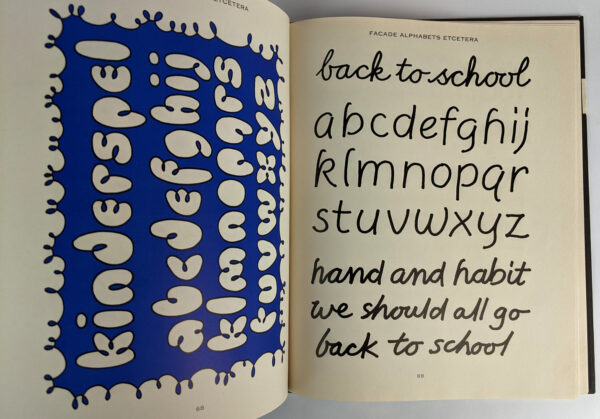 ETCETERA
kinderspel
abcdefghij
klmnopqrs
tuvwxyz
68
FACADE ALPHABETS ETCETERA
back to school
abcdefghij
klmnopqr
stuvwxyz
hand and habit
we should all go
back to school